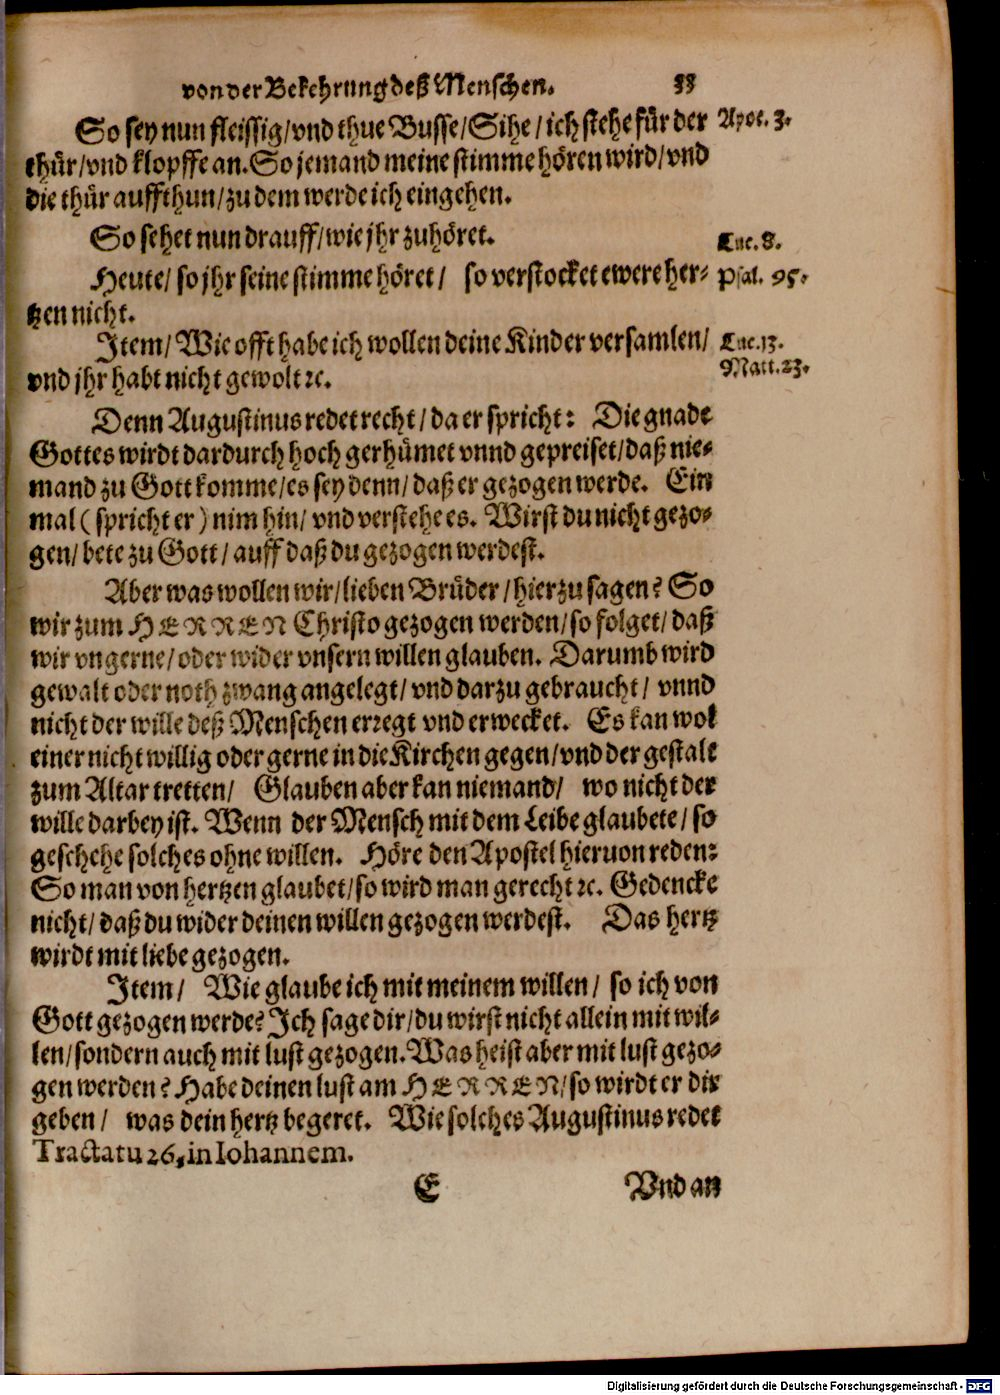 von der Bekehrung deß Menschen. 33
So sey nun fleissig/vnd thue Busse/Sihe/ich stehe für der Apoc. 3.
thür/vnd klopffe an. So jemand meine stimme hören wird/vnd
die thür auffthun/zu dem werde ich eingehen.
So sehet nun drauff/wie jhr zuhöret. Luc. 8.
Heute/ so jhr seine stimme höret/ so verstocket ewere her- Psal. 95.
tzen nicht.
Item/ Wie offt habe ich wollen deine Kinder versamlen/ Luc. 13.
vnd jhr habt nicht gewolt ꝛc. Matt. 23.
Denn Augustinus redet recht/da er spricht: Die gnade
Gottes wirdt dardurch hoch gerhümet vnnd gepreiset/daß nie-
mand zu Gott komme/es sey denn/daß er gezogen werde. Ein
mal (spricht er) nim hin/ vnd verstehe es. Wirst du nicht gezo-
gen/bete zu Gott/auff daß du gezogen werdest.
Aber was wollen wir/lieben Brüder/hierzu sagen? So
wir zum HERREN Christo gezogen werden/so folget/daß
wir vngerne/oder wider vnsern willen glauben. Darumb wird
gewalt oder noth zwang angelegt/vnd darzu gebraucht/ vnnd
nicht der wille deß Menschen erregt vnd erwecket. Es kan wol
einer nicht willig oder gerne in die Kirchen gegen/vnd der gestalt
zum Altar tretten/ Glauben aber kan niemand/ wo nicht der
wille darbey ist. Wenn der Mensch mit dem Leibe glaubete/so
geschehe solches ohne willen. Höre den Apostel hieruon reden:
So man von hertzen glaubet/so wird man gerecht ꝛc. Gedencke
nicht/daß du wider deinen willen gezogen werdest. Das hertz
wirdt mit liebe gezogen.
Item/ Wie glaube ich mit meinem willen/ so ich von
Gott gezogen werde? Ich sage dir/du wirst nicht allein mit wil-
len/sondern auch mit lust gezogen. Was heist aber mit lust gezo-
gen werden? Habe deinen lust am HERREN/so wirdt er dir
geben/ was dein hertz begeret. Wie solches Augustinus redet
Tractatu 26, in Iohannem.
E Vnd an
Digitalisierung gefördert durch die Deutsche Forschungsgemeinschaft - DFG